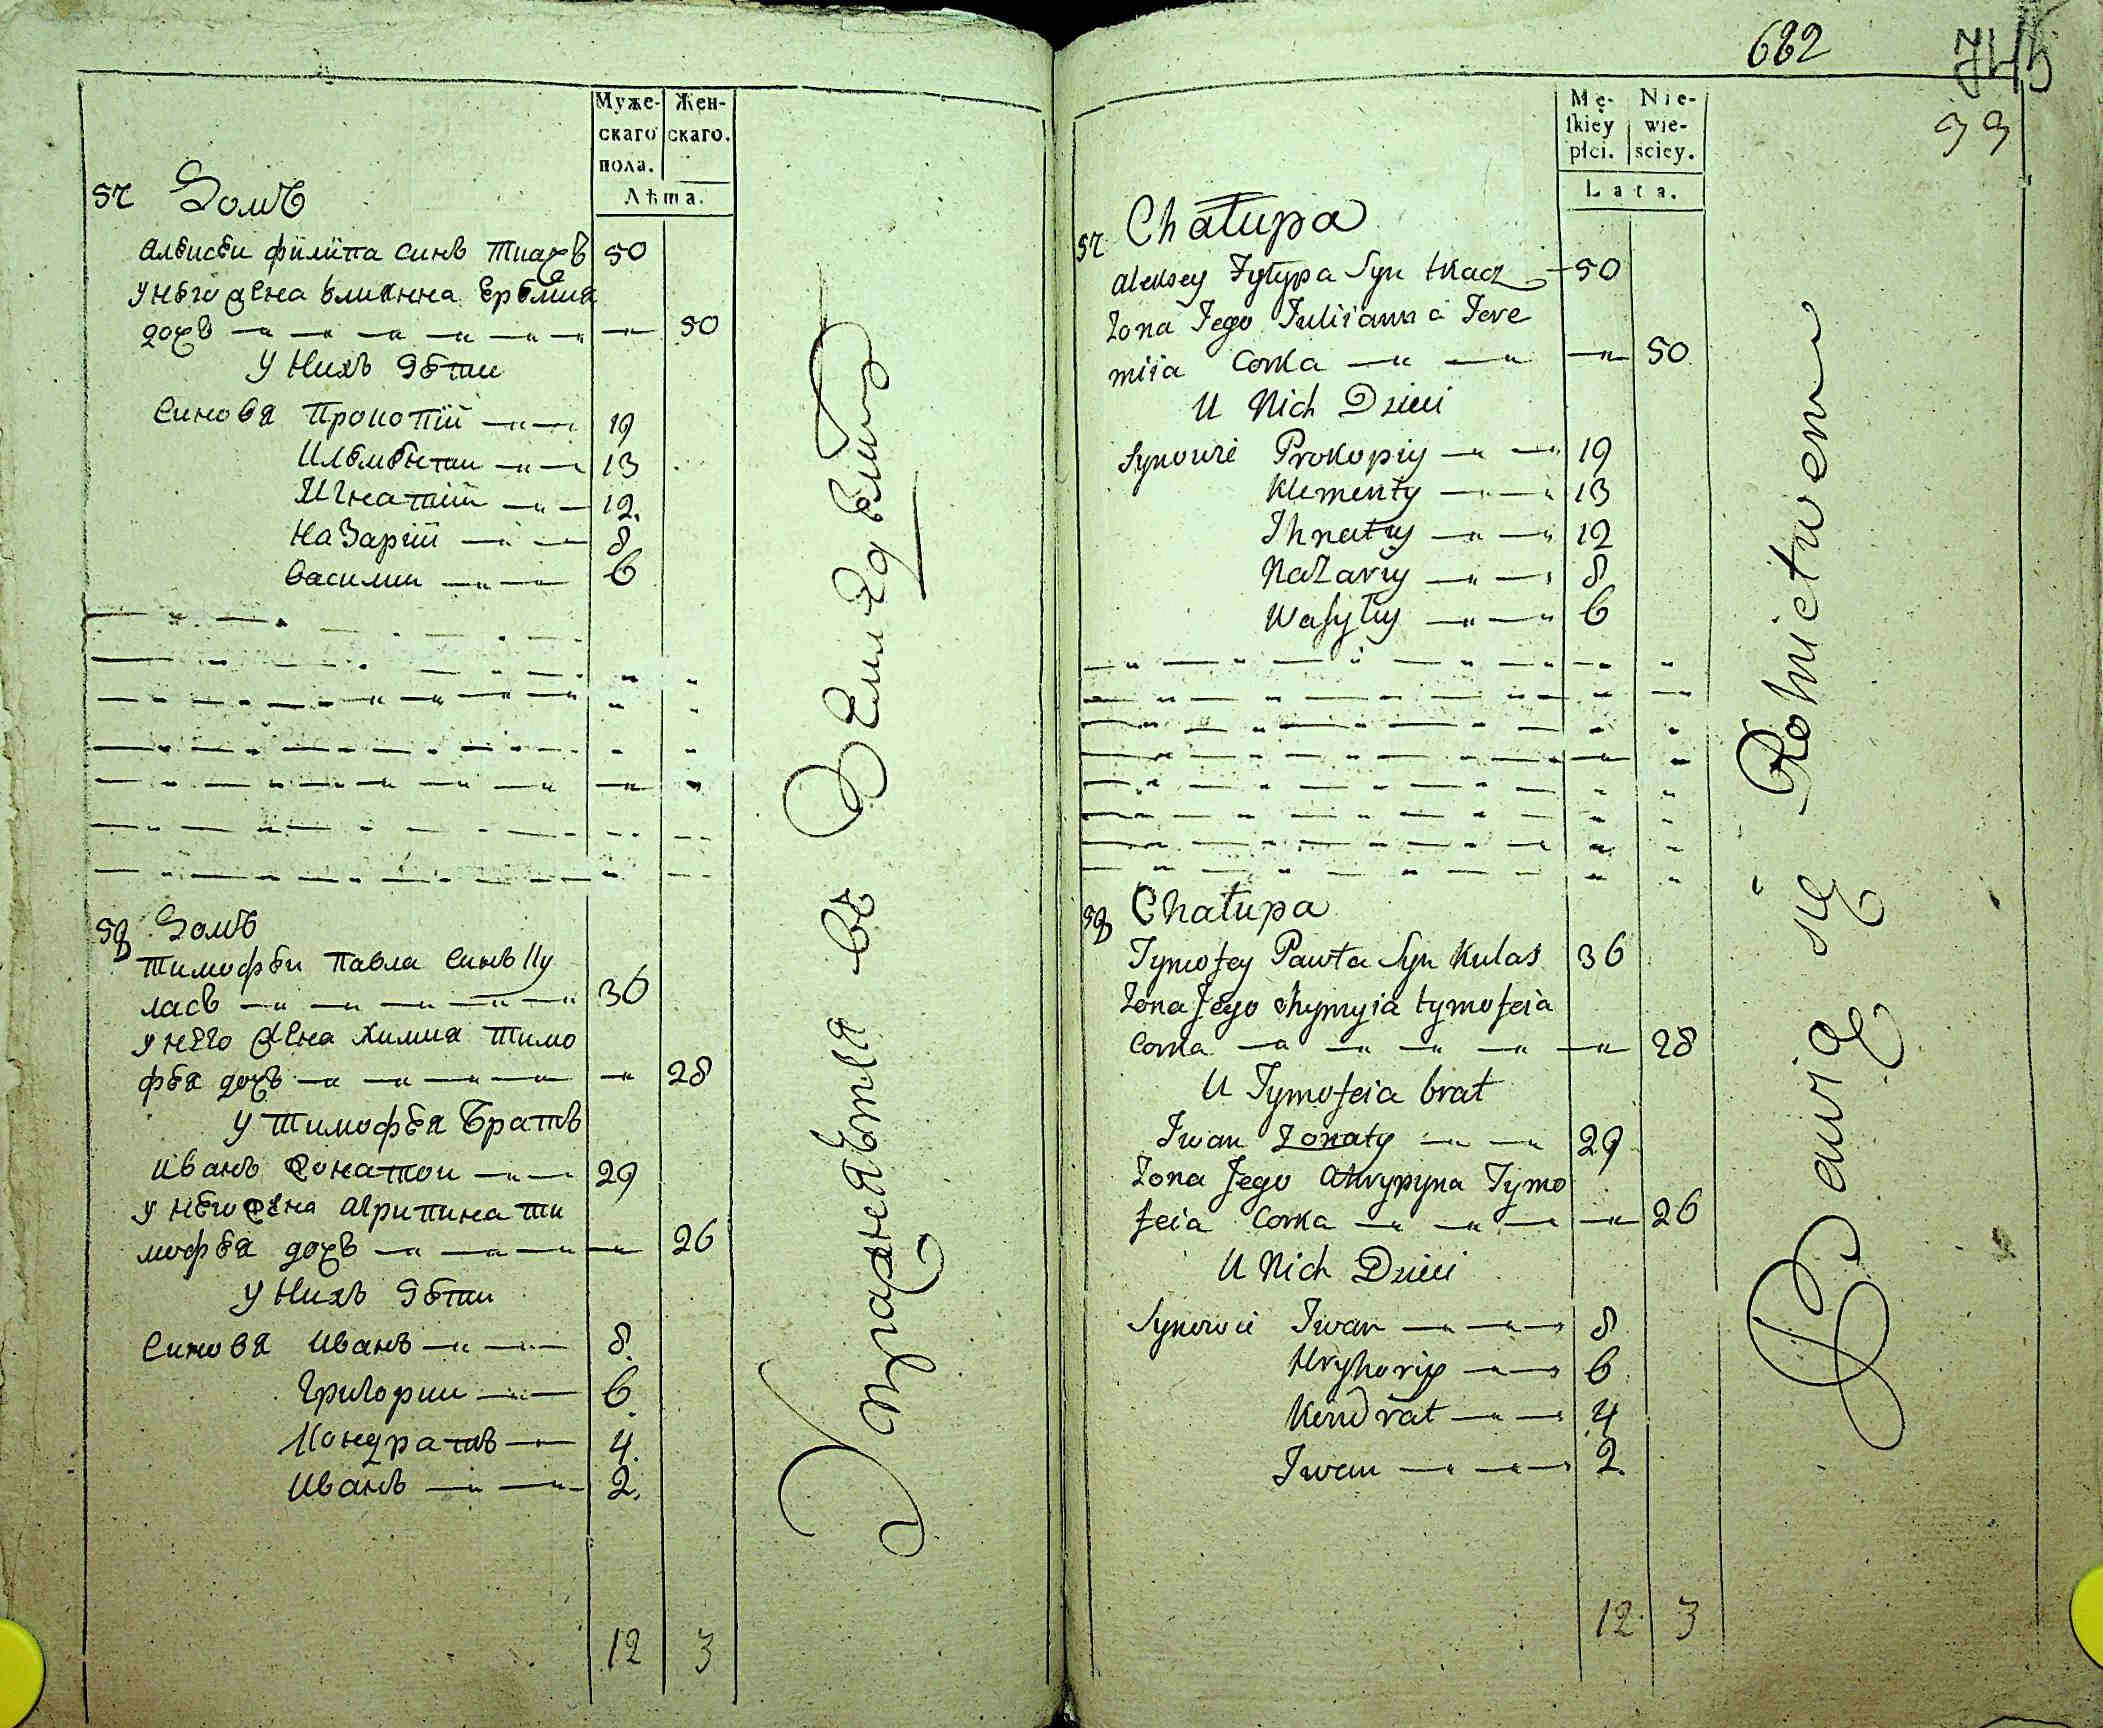 Муже-
скаго
пола.
Жен-
скаго.
Лѣта.
57 Домъ
Алексеи филипа синъ ткачъ 50
У него жена Улианна Еремиа
дочъ 50
У Нихъ Дѣти
Синовя Прокопій 19
Клементи 13
Игнатій 12.
Назарій 8
Василии 6
58 Домъ
Тимофеи Павла Синъ Ку
ласъ 36
У него жена Химиа Тимо
фея дочъ 28
У Тимофея Братъ
Иванъ Жонатои 29
У него жена Агрипина Ти
мофея дочъ 26
У Нихъ Дѣти
Синовя Иванъ 8.
Григории 6.
Кондратъ 4.
Иванъ 2.
12 3
Упражняются въ Земледелии
682
745
93
Mę-
ſkiey
płci.
Nie-
wie-
sciey.
Lata.
57 Chałupa
Aleksey Fylypa Syn tkacz 50
Zona Jego Juliianna Jere
miia Corka 50
U Nich Dzieci
Synowie Prokopiy 19
Klementy 13
Ihnatiy 12
Nazariy 8
Wasyliy 6
58 Chałupa
Tymofey Pawła Syn Kulas 36
Zona Jego Chymyia tymofeia
Corka 28
U Tymofeia brat
Iwan Zonaty 29
Zona Jego Ahrypyna Tymo
feia Corka 26
U Nich Dzieci
Synowie Iwan 8
Hryhoriy 6
Kindrat 4
Iwan 2.
12 3
Bawią się Rolnictwem